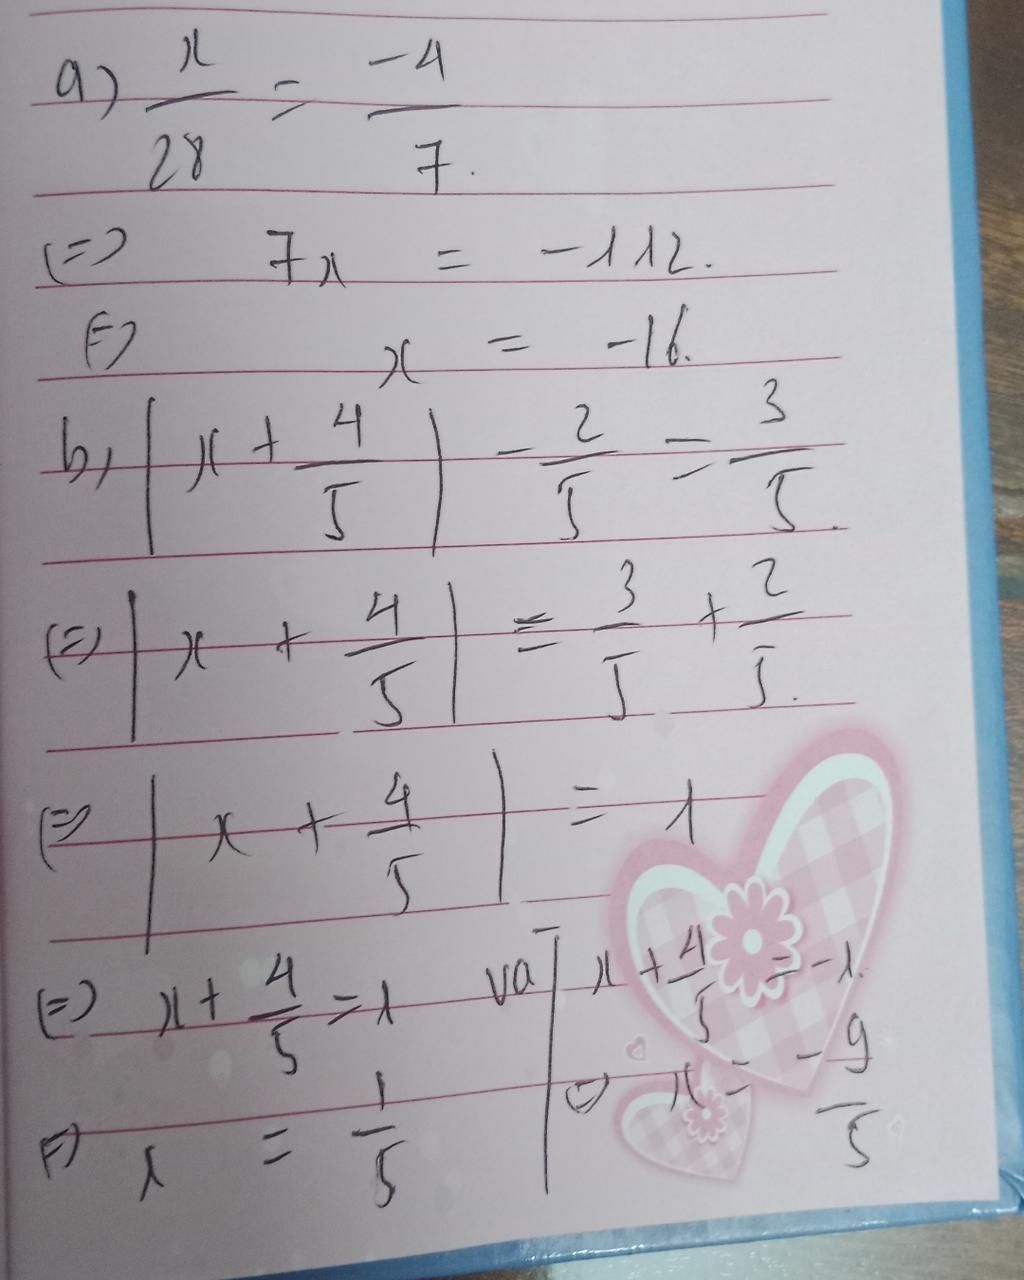 a) x/28 = -4/7.
(=) 7x = -112.
(=) x = -16.
b, |x + 4/5| - 2/5 = 3/5.
(=) |x + 4/5| = 3/5 + 2/5.
(=) |x + 4/5| = 1
(=) x + 4/5 = 1 va | x + 4/5 = -1.
(=) x = 1/5 | (=) x = -9/5